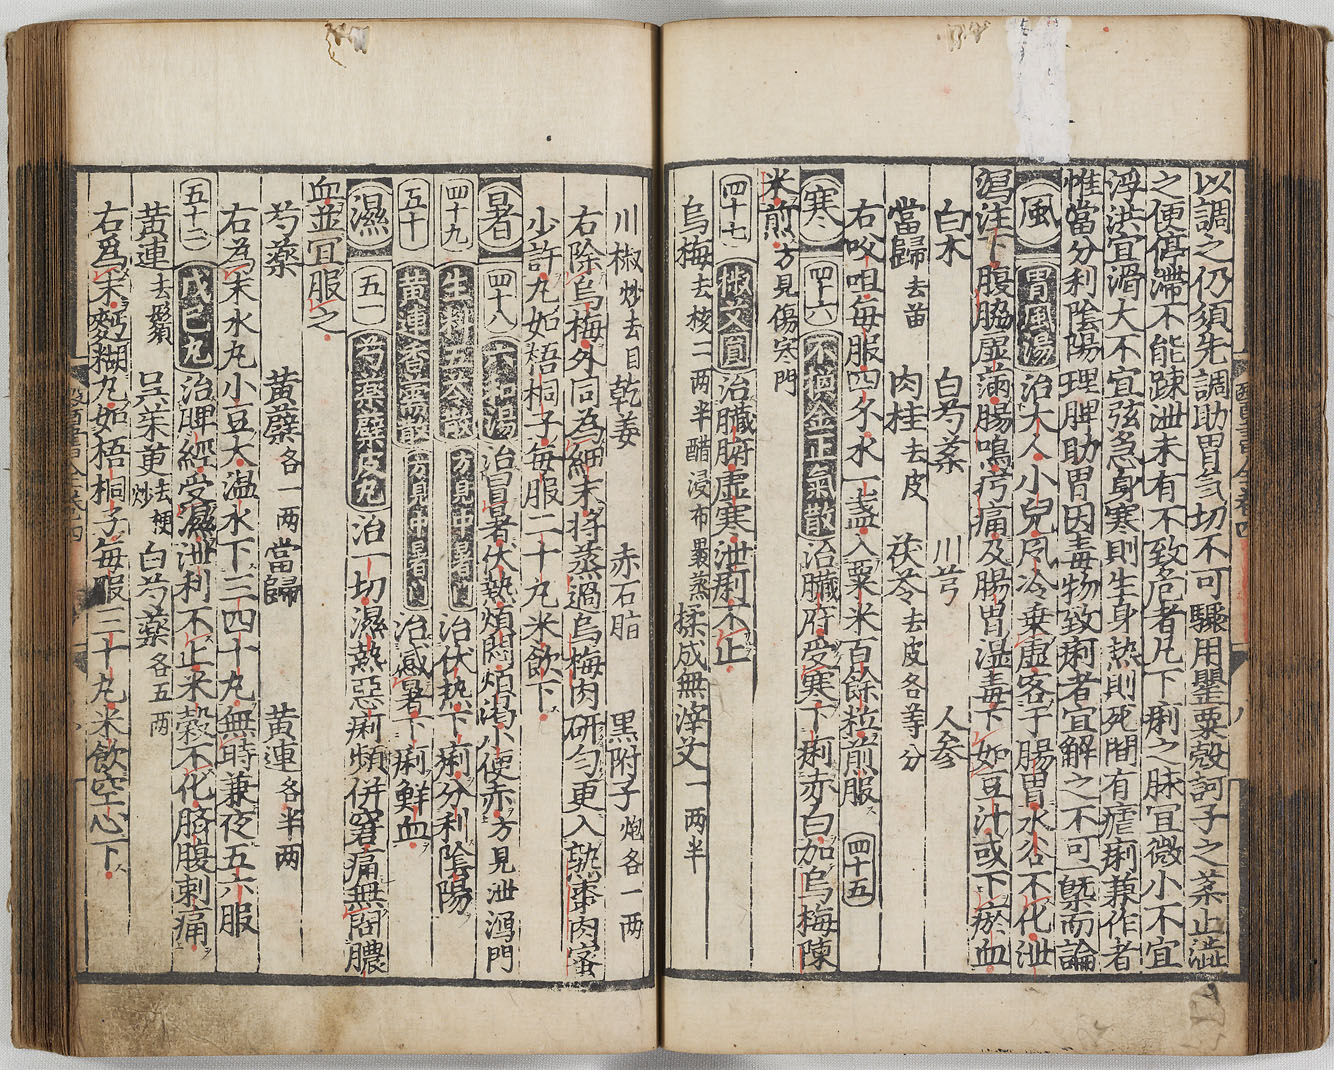 以調之仍須先調助胃氣切不可驟用罌粟殼訶子之藥止澁
之便停滯不能踈泄未有不致危者凡下痢之脉宜微小不宜
浮洪宜滑大不宜弦急身寒則生身熱則死間有瘧痢兼作者
惟當分利陰陽理脾助胃因毒物致痢者宜解之不可槩而論
風 胃風湯 治大人小兒風冷乗虛客于腸胃水谷不化泄
瀉注下腹脇虛滿腸鳴㽲痛及腸胃湿毒下如豆汁或下瘀血
白朮 白芍藥 川芎 人參
當歸去苗 肉桂去皮 茯苓去皮各等分
右㕮咀每服四夕水一盞入粟米百餘粒煎服 四十五
寒 四十六 不換金正氣散 治臟府受寒下痢赤白加烏梅陳
米煎方見傷寒門
四十七 椒艾圓 治臟腑虛寒泄痢不止
烏梅去核二两半醋浸布裹蒸 揉成無滓艾一两半
川椒炒去目 乾姜 赤石脂 黑附子炮各一两
右除烏梅外同為細末将蒸過烏梅肉研匀更入熟棗肉蜜
少許丸如梧桐子每服二十丸米飲下
暑 四十八 六和湯 治冒暑伏熱煩悶煩渴小便赤方見泄瀉門
四十九 生料五苓散方見中暑 治伏热下痢分利陰陽
五十 黄連香薷散方見中暑 治感暑下痢鮮血
濕 五一 芍藥蘗皮丸 治一切濕熱惡痢頻併窘痛無問膿
血並宜服之
芍藥 黄蘗各一两 當歸 黄連各半两
右為末水丸小豆大温水下三四十丸無時兼夜五六服
五十二 戊己丸 治脾經受濕泄利不止米穀不化脐腹刺痛
黄連去鬚 吳茱萸去梗炒 白芍藥各五两
右為末麪糊丸如梧桐子每服三十丸米飲空心下